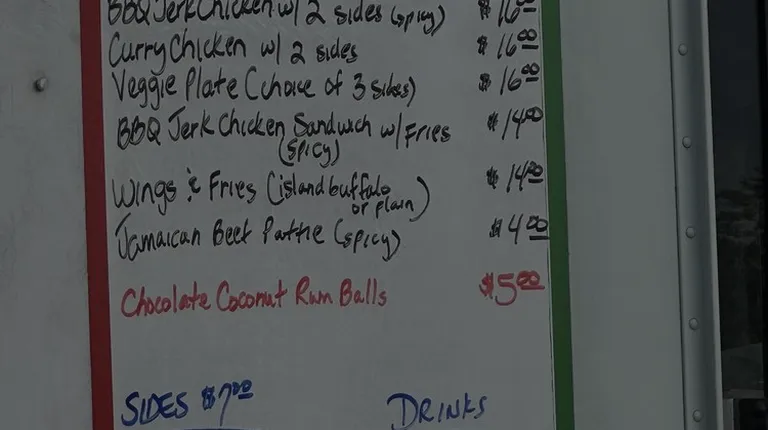 BBQ Jerk Chicken w/ 2 sides (spicy) $16.00
Curry Chicken w/ 2 sides $16.00
Veggie Plate (choice of 3 sides) $16.00
BBQ Jerk Chicken Sandwich w/ Fries $14.00
(spicy)
Wings & Fries (island buffalo $14.00
or plain)
Jamaican Beef Pattie (spicy) $4.00
Chocolate Coconut Rum Balls $5.00
SIDES $7.00 DRINKS